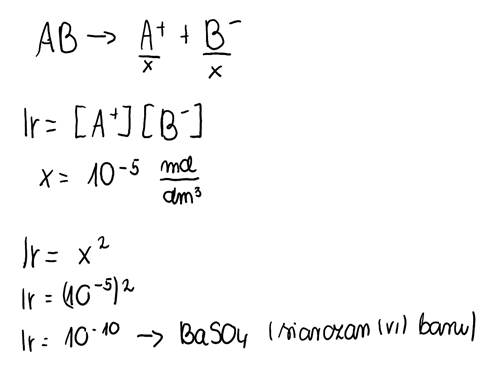 AB → A⁺ + B⁻
x x
Ir = [A⁺][B⁻]
x = 10⁻⁵ mol/dm³
Ir = x²
Ir = (10⁻⁵)²
Ir = 10⁻¹⁰ → BaSO₄ (siarczan (VI) baru)